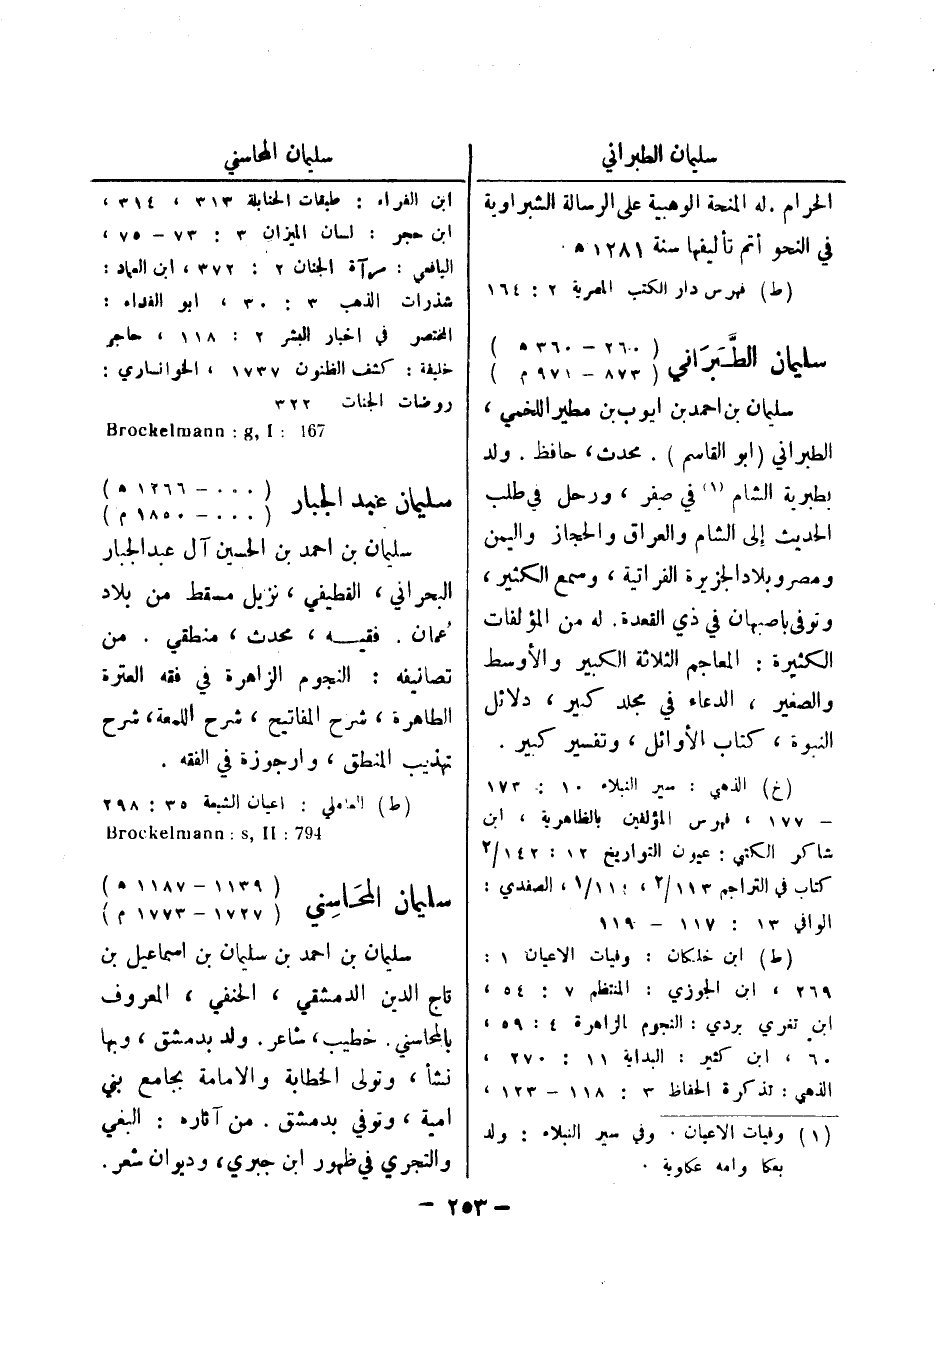 سليمان الطبراني
الحرام . له المنحة الوهبية على الرسالة الشبراوية
في النحو أتم تأليفها سنة ١٢٨١ ه .
(ط) فهرس دار الكتب المصرية ٢ : ١٦٤
سليمان الطَّبَرَاني ( ٢٦٠ – ٣٦٠ ه )
( ٨٧٣ – ٩٧١ م )
سليمان بن احمد بن ايوب بن مطير اللخمي ،
الطبراني (ابو القاسم ) . محدث ، حافظ . ولد
بطبرية الشام (١) في صفر ، ورحل في طلب
الحديث إلى الشام والعراق والحجاز واليمن
ومصر وبلاد الجزيرة الفراتية ، وسمع الكثير ،
وتوفى باصبهان في ذي القعدة . له من المؤلفات
الكثيرة : المعاجم الثلاثة الكبير والأوسط
والصغير ، الدعاء في مجلد كبير ، دلائل
النبوة ، كتاب الأوائل ، وتفسير كبير .
(خ) الذهبي : سير النبلاء ١٠ : ١٧٣
– ١٧٧ ، فهرس المؤلفين بالظاهرية ، ابن
شاكر الكتبي : عيون التواريخ ١٢ : ١٤٢/٢
كتاب في التراجم ١١٣/٢ ، ١١/١ ، الصفدي :
الوافي ١٣ : ١١٧ – ١١٩
(ط) ابن خلكان : وفيات الاعيان ١ :
٢٦٩ ، ابن الجوزي : المنتظم ٧ : ٥٤ ،
ابن تغري بردي : النجوم الزاهرة ٤ : ٥٩ ،
٦٠ ، ابن كثير : البداية ١١ : ٢٧٠ ،
الذهبي : تذكرة الحفاظ ٣ : ١١٨ – ١٢٣ ،
(١) وفيات الاعيان . وفي سير النبلاء : ولد
بعكا وامه عكاوية .
سليمان المحاسني
ابن الفراء : طبقات الحنابلة ٣١٣ ، ٣١٤ ،
ابن حجر : لسان الميزان ٣ : ٧٣ – ٧٥ ،
اليافعي : مرآة الجنان ٢ : ٣٧٢ ، ابن العماد :
شذرات الذهب ٣ : ٣٠ ، ابو الفداء :
المختصر في اخبار البشر ٢ : ١١٨ ، حاجي
خليفة : كشف الظنون ١٧٣٧ ، الخوانساري :
روضات الجنات ٣٢٢
Brockelmann : g, I : 167
سليمان عبد الجبار ( ... – ١٢٦٦ ه )
( ... – ١٨٥٠ م )
سليمان بن احمد بن الحسين آل عبد الجبار
البحراني ، القطيفي ، نزيل مسقط من بلاد
عُمان . فقيه ، محدث ، منطقي . من
تصانيفه : النجوم الزاهرة في فقه العترة
الطاهرة ، شرح المفاتيح ، شرح اللمعة، شرح
تهذيب المنطق ، وارجوزة في الفقه .
(ط) العاملي : اعيان الشيعة ٣٥ : ٢٩٨
Brockelmann : s, II : 794
سليمان المحَاسِني ( ١١٣٩ – ١١٨٧ ه )
( ١٧٢٧ – ١٧٧٣ م )
سليمان بن احمد بن سليمان بن اسماعيل بن
تاج الدين الدمشقي ، الحنفي ، المعروف
بالمحاسني . خطيب ، شاعر . ولد بدمشق ، وبها
نشأ ، وتولى الخطابة والامامة بجامع بني
امية ، وتوفي بدمشق . من آثاره : البغي
والتجري في ظهور ابن جبري ، وديوان شعر .
– ٢٥٣ –